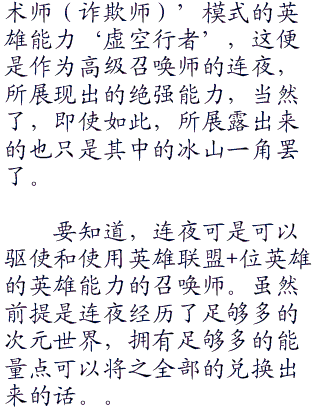 术师（诈欺师）’模式的英
雄能力‘虚空行者’，这便
是作为高级召唤师的连夜，
所展现出的绝强能力，当然
了，即使如此，所展露出来
的也只是其中的冰山一角罢
了。
要知道，连夜可是可以
驱使和使用英雄联盟+位英雄
的英雄能力的召唤师。虽然
前提是连夜经历了足够多的
次元世界，拥有足够多的能
量点可以将之全部的兑换出
来的话。。